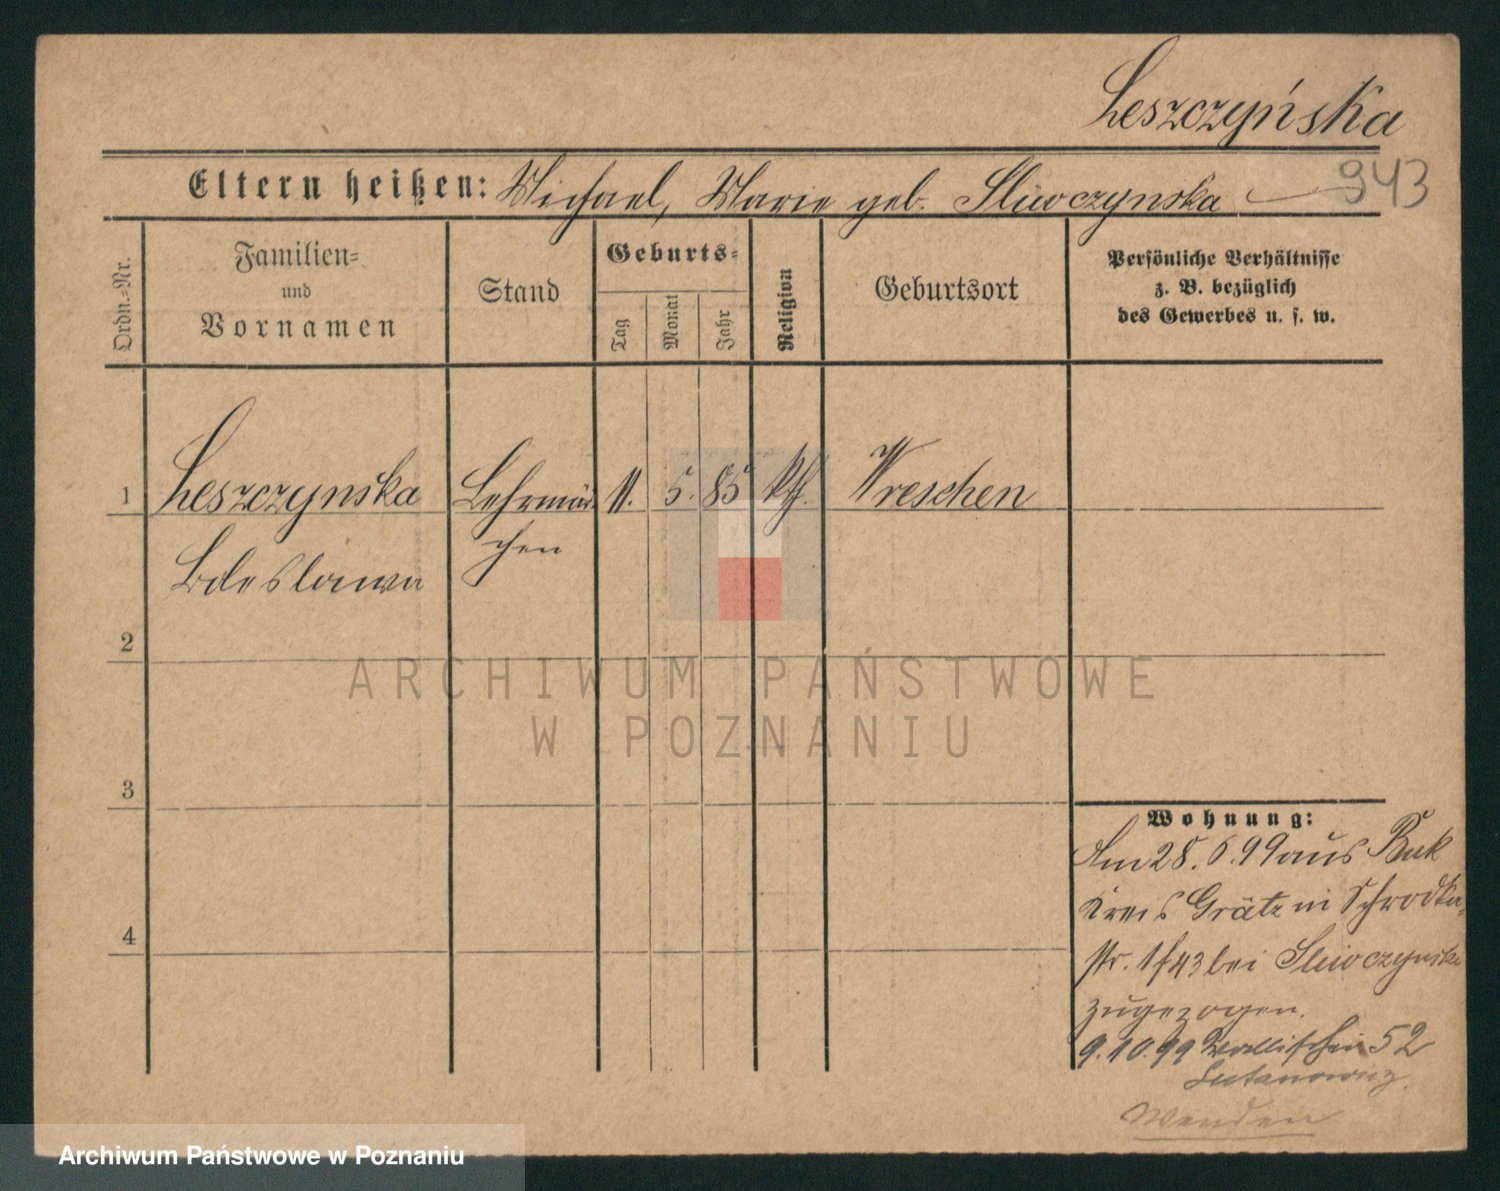 Leszczyńska
943
Eltern heißen: Michael, Marie geb. Sliwczynska
Ordn.-Nr.
Familien-
und
Vornamen
Stand
Geburts-
Tag
Monat
Jahr
Religion
Geburtsort
Persönliche Verhältnisse
z. B. bezüglich
des Gewerbes u. s. w.
1 Leszczynska Lehrmäd- 11. 5. 85 kth. Wreschen
Boleslawa chen
2
3
4
Wohnung:
Am 28. 6. 99 aus Buk
Kreis Grätz in Schrodka
str. 143 bei Sliwczynska
zugezogen.
9. 10. 99 Wallischei 52
ARCHIWUM PAŃSTWOWE
W POZNANIU
Archiwum Państwowe w Poznaniu